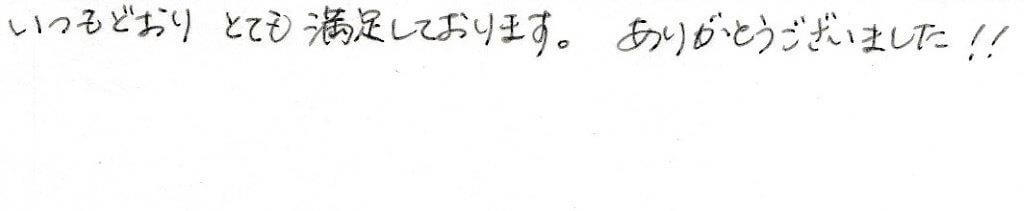 いつもどおり とても満足しております。 ありがとうございました!!